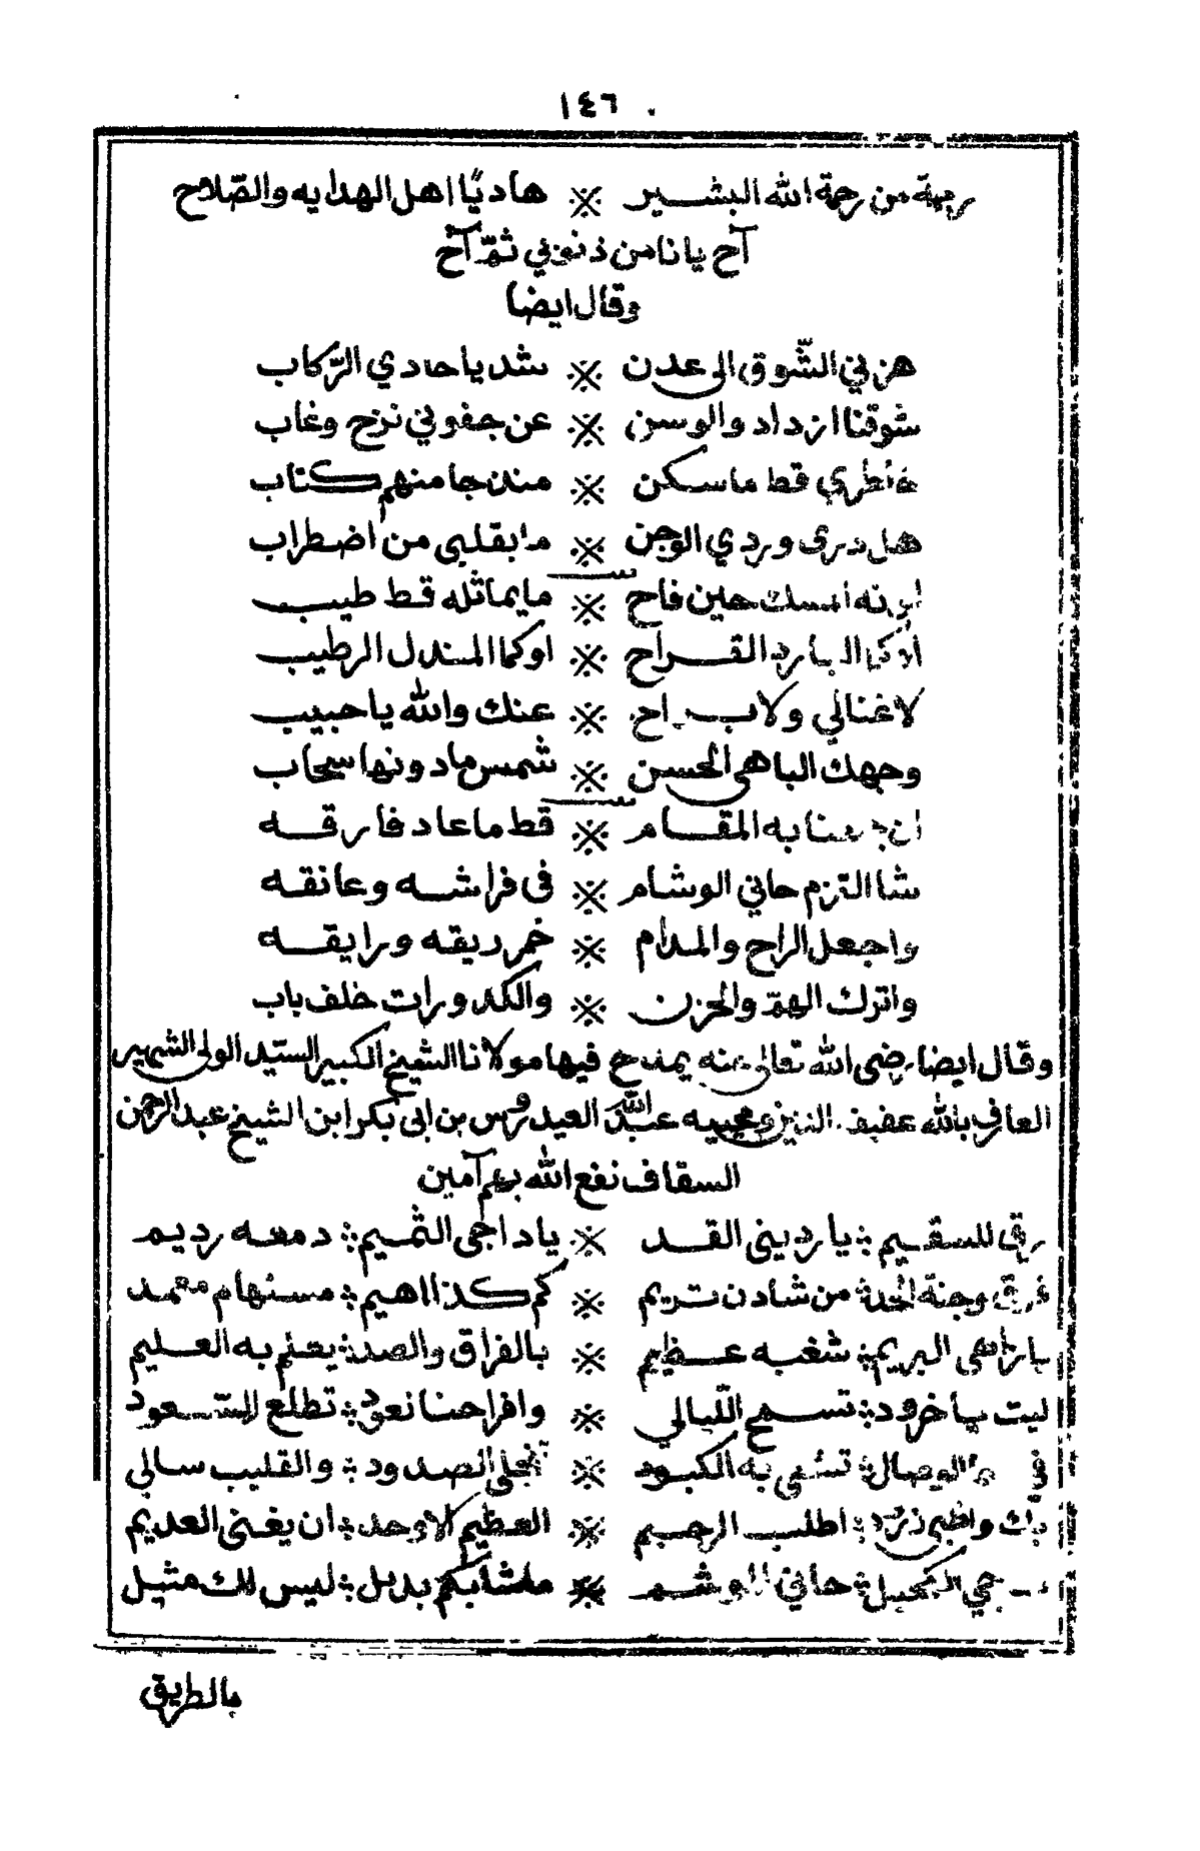 ١٤٦
رحمة من رحمة الله البشير ※ هاديًا اهل الهدايه والصّلاح
آح يانا من ذنوبي ثمّ آح
وقال ايضا
هزني الشّوق الى عدن ※ شد يا حادي الرّكاب
شوقنا ازداد والوسن ※ عن جفوني نزح وغاب
خاطري قط ما سكن ※ منذ جا منهم كتاب
هل درى وردي الوجن ※ ما بقلبي من اضطراب
لونه المسك حين فاح ※ ما يماثله قط طيب
البارد القراح ※ اوكما المندل الرطيب
لا غنالي ولا براح ※ عنك والله يا حبيب
وجهك الباهى الحسن ※ شمس مادونها سحاب
ان جمعنا به المقام ※ قط ما عاد فارقه
شا التزم حاني الوشام ※ فى فراشه وعانقه
واجعل الراح والمدام ※ خمر ريقه ورايقه
واترك الهمّ والحزن ※ والكدورات خلف باب
وقال ايضا رضى الله تعالى عنه يمدح فيها مولانا الشيخ الكبير السيّد الولى الشهير
العارف بالله عفيف الدين ومحييه عبد الله العيدروس بن ابى بكر ابن الشيخ عبد الرحمن
السقاف نفع الله بهم آمين
رق للسقيم ؞ يا رديني القد ※ يا داجى الثميم ؞ دمعه رديم
فرق وجنة الخد ؞ من شادن تريم ※ كم كذا اهيم ؞ مستهام معمد
يا زاهى البريم ؞ شغبه عظيم ※ بالفراق والصد ؞ يعلم به العليم
ليت يا خرود ؞ تسمح اللّيالي ※ وافراحنا تعود ؞ تطلع السّعود
الوصال ؞ تشفى به الكبود ※ تنجلى الصدود ؞ والقليب سالي
اطلب الرحيم ※ العظيم الاوحد ؞ ان يغنى العديم
حاني الوشم ※ ما شابكم بديل ؞ ليس لك مثيل
بالطريق